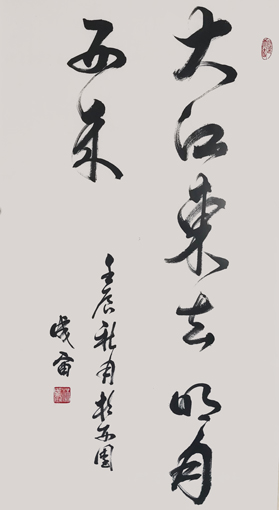 大江東去 明月
西來
壬辰秋月於西園
成雷